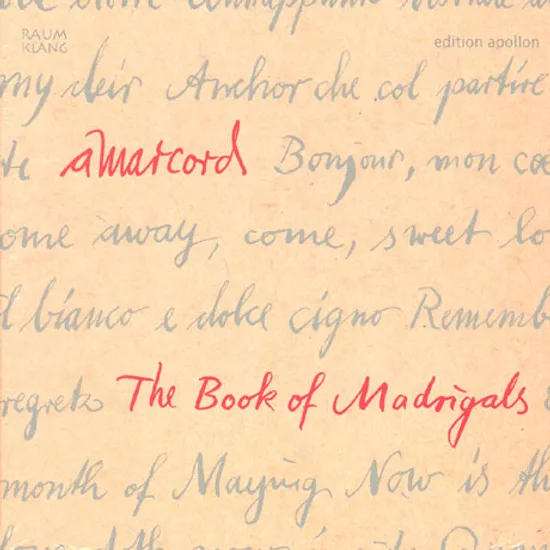 RAUM
KLANG
edition apollon
my deir Anchor che col partire
te amarcord Bonjour, mon cœ
ome away, come, sweet lo
l bianco e dolce cigno Rememb
regretz The Book of Madrigals
month of Maying Now is th